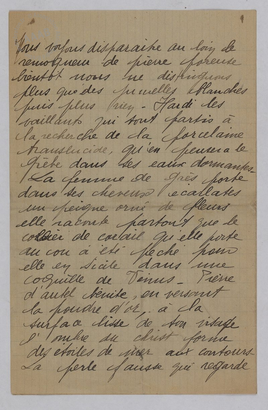 Nous voyons disparaître au loin le
remorqueur de pierre poreuse
bientôt nous ne distinguons
plus que des prunelles blanches
puis plus rien - Hardi les
vaillants qui sont partis à
la recherche de la porcelaine
translucide, qu'on pêche à la
dans des eaux dormantes
La femme de grès porte
dans ses cheveux écarlates
un peigne orné de fleurs
elle raconte partout que le
collier de corail qu'elle porte
au cou a été pêché pour
elle en Sicile dans une
coquille de Vénus - Pierre
d'autel bénite, en versant
la poudre d'or, à la
surface lisse de ton visage
l'ombre du christ forme
des étoiles de mer aux contours
La perle fausse qui regarde